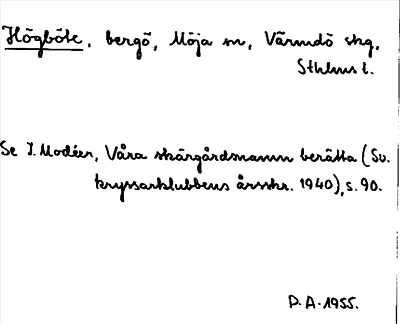 Högböte, bergö, Möja sn, Värmdö skg,
Sthlms l.
Se I. Modéer, Våra skärgårdsnamn berätta (Sv.
kryssarklubbens årsskr. 1940), s. 90.
P.A. 1955.